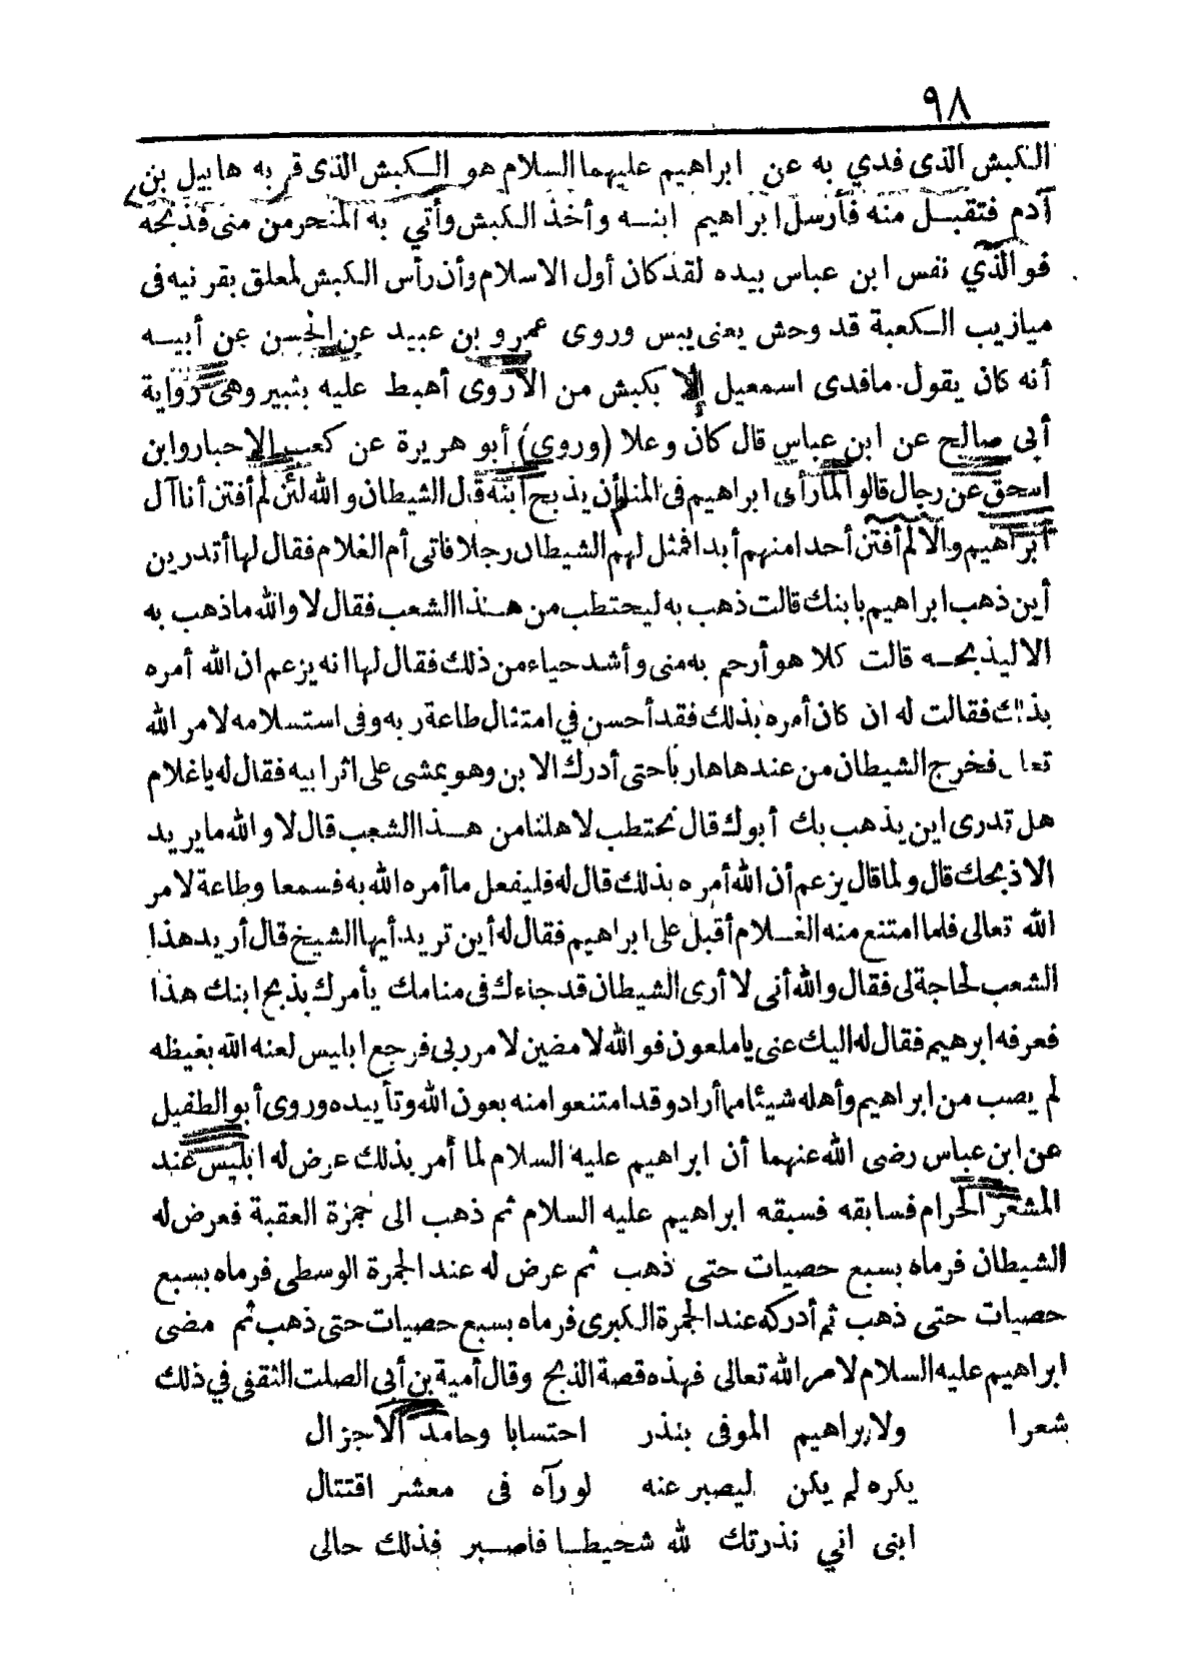 ٩٨
الكبش الذى فدي به عن ابراهيم عليهما السلام هو الكبش الذى قر به هابيل بن
آدم فتقبل منه فأرسل ابراهيم ابنه وأخذ الكبش وأتي به المنحر من منى فذبحه
فو الذي نفس ابن عباس بيده لقد كان أول الاسلام وأن رأس الكبش لمعلق بقرنيه فى
ميازيب الكعبة قد وحش يعنى يبس وروى عمرو بن عبيد عن الحسن عن أبيه
أنه كان يقول ما فدى اسمعيل الا بكبش من الاروى أهبط عليه بثبير وهى رواية
أبى صالح عن ابن عباس قال كان وعلا (وروى) أبو هريرة عن كعب الاحبار وابن
اسحق عن رجال قالوا لما رأى ابراهيم فى المنام أن يذبح ابنه قال الشيطان والله لئن لم أفتن أنا آل
ابراهيم والا لم أفتن أحدا منهم أبدا فمثل لهم الشيطان رجلا فاتى أم الغلام فقال لها أتدرين
أين ذهب ابراهيم بابنك قالت ذهب به ليحتطب من هذا الشعب فقال لا والله ما ذهب به
الا ليذبحه قالت كلا هو أرحم به منى وأشد حياء من ذلك فقال لها انه يزعم ان الله أمره
بذلك فقالت له ان كان أمره بذلك فقد أحسن في امتثال طاعة ربه وفى استسلامه لامر الله
تعالى فخرج الشيطان من عندها هاربا حتى أدرك الابن وهو يمشى على اثر ابيه فقال له يا غلام
هل تدرى اين يذهب بك أبوك قال نحتطب لاهلنا من هذا الشعب قال لا والله ما يريد
الا ذبحك قال ولما قال يزعم أن الله أمره بذلك قال له فليفعل ما أمره الله به فسمعا وطاعة لامر
الله تعالى فلما امتنع منه الغلام أقبل على ابراهيم فقال له أين تريد أيها الشيخ قال أريد هذا
الشعب لحاجة لى فقال والله أنى لا أرى الشيطان قد جاءك فى منامك يأمرك بذبح ابنك هذا
فعرفه ابرهيم فقال له اليك عنى يا ملعون فو الله لامضين لامر ربى فرجع ابليس لعنه الله بغيظه
لم يصب من ابراهيم وأهله شيئا مما أراد وقد امتنعوا منه بعون الله وتأييده وروى أبو الطفيل
عن ابن عباس رضى الله عنهما أن ابراهيم عليه السلام لما أمر بذلك عرض له ابليس عند
المشعر الحرام فسابقه فسبقه ابراهيم عليه السلام ثم ذهب الى جمرة العقبة فعرض له
الشيطان فرماه بسبع حصيات حتى ذهب ثم عرض له عند الجمرة الوسطى فرماه بسبع
حصيات حتى ذهب ثم أدركه عند الجمرة الكبرى فرماه بسبع حصيات حتى ذهب ثم مضى
ابراهيم عليه السلام لامر الله تعالى فهذه قصة الذبح وقال أمية بن أبى الصلت الثقفى في ذلك
شعرا ولابراهيم الموفى بنذر احتسابا وحامد الاجزال
بكره لم يكن ليصبر عنه لو رآه فى معشر اقتتال
ابنى اني نذرتك لله شحيطا فاصبر فذلك حالى